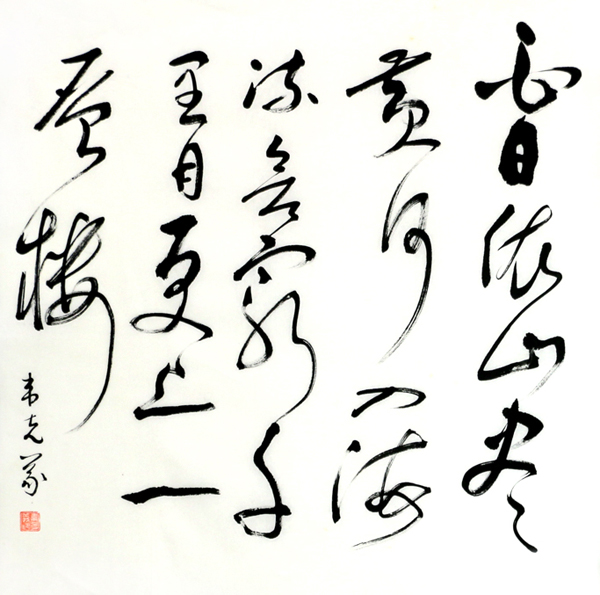 白日依山尽
黄河入海
流欲穷千
里目更上一
层楼
韦克义